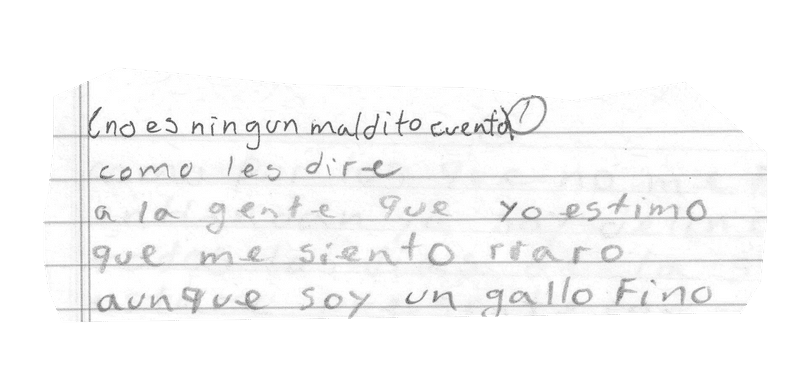 (no es ningun maldito cuento) 1
como les dire
a la gente que yo estimo
que me siento rraro
aunque soy un gallo Fino